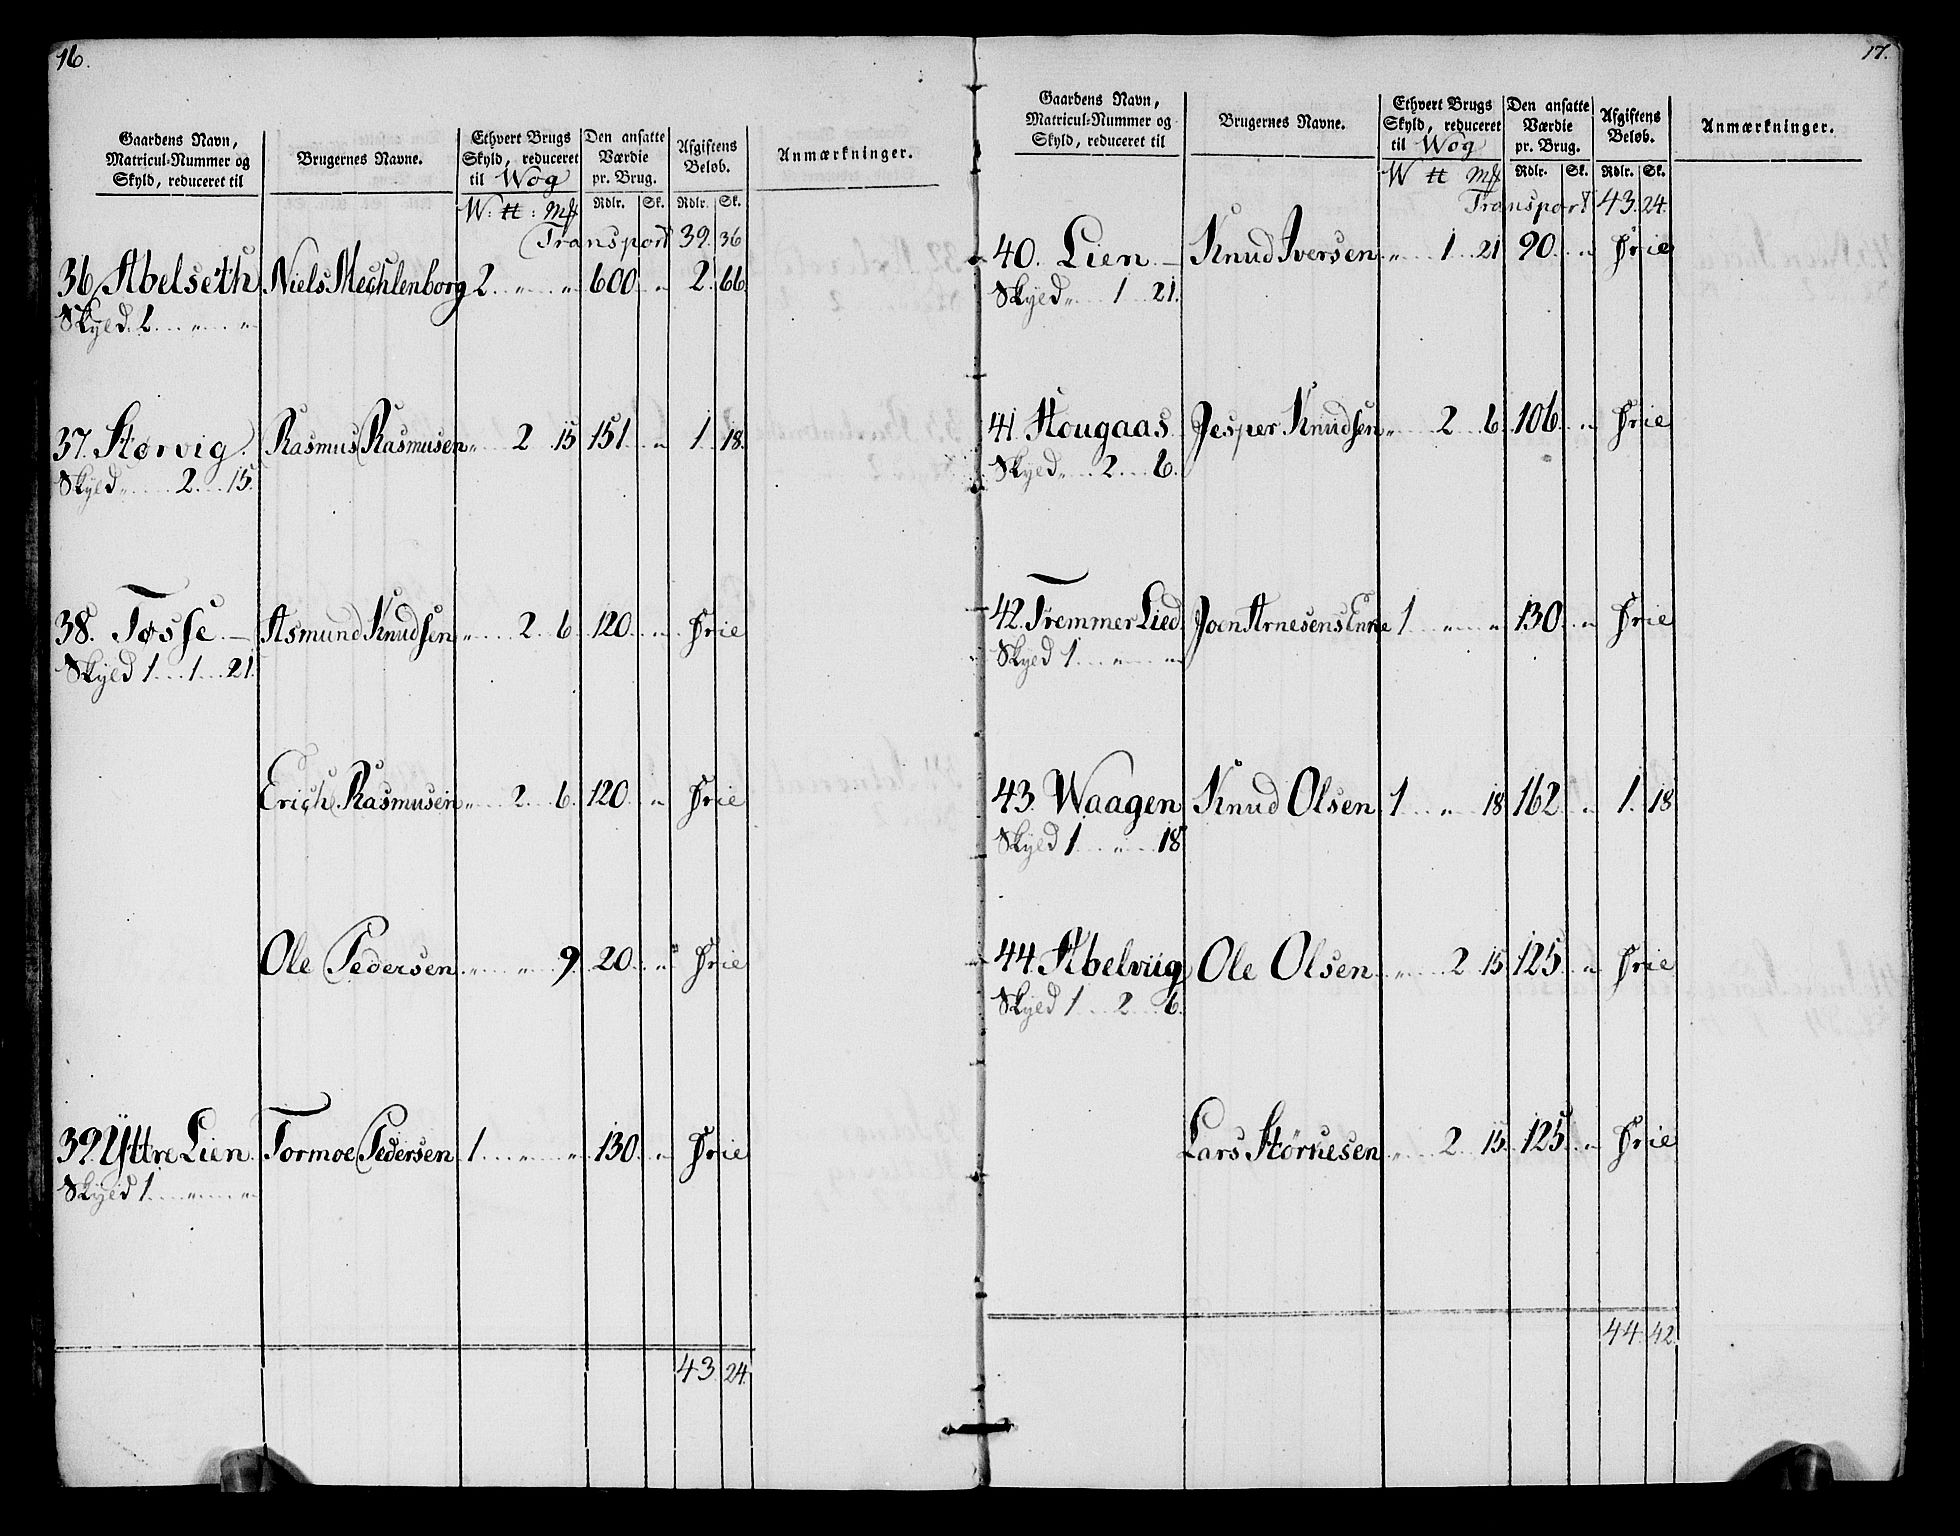 16.
Gaardens Navn, Matricul-Nummer og Skyld, reduceret til | Brugernes Navne. | Ethvert Brugs Skyld, reduceret til Wog | Den ansatte Værdie pr. Brug. | Afgiftens Beløb. | Anmærkninger.
W: ℔: Mk | Rdlr. | Sk. | Rdlr. | Sk.
Transport 39. 36
36 Abelseth Niels Mechlenborg 2 „ „ 600 „ 2. 66.
Skyld. 2 „ „
37. Storvig. Rasmus Rasmusen „ 2 15 151. „ 1. 18.
Skyld „ 2. 15.
38. Tøsse Asmund Knudsen „ 2 6. 120. „ Frie
Skyld 1 1 21.
Erich Rasmusen „ 2 6. 120. „ Frie
Ole Pedersen „ „ 9. 20. „ Frie
39. Yttre Lien Tormoe Pedersen 1. „ „ 130 „ Frie
Skyld 1 „ „
43. 24.
17.
Gaardens Navn, Matricul-Nummer og Skyld, reduceret til | Brugernes Navne. | Ethvert Brugs Skyld, reduceret til Wog | Den ansatte Værdie pr. Brug. | Afgiftens Beløb. | Anmærkninger.
W ℔ Mk | Rdlr. | Sk. | Rdlr. | Sk.
Transport 43. 24.
40. Lien Knud Iversen „ 1 21 90. „ Frie
Skyld „ 1 21.
41. Hougaas Jesper Knudsen „ 2 6. 106. „ Frie
Skyld „ 2. 6.
42. Tremmer Lied. Joen Arnesens Enke 1 „ „ 130 „ Frie
Skyld 1. „ „
43. Waagen Knud Olsen 1 „ 18 162 „ 1. 18
Skyld 1. „ 18
44. Abelviig Ole Olsen „ 2 15. 125 „ Frie
Skyld 1. 2. 6.
Lars Størkesen „ 2 15. 125 „ Frie
44. 42.